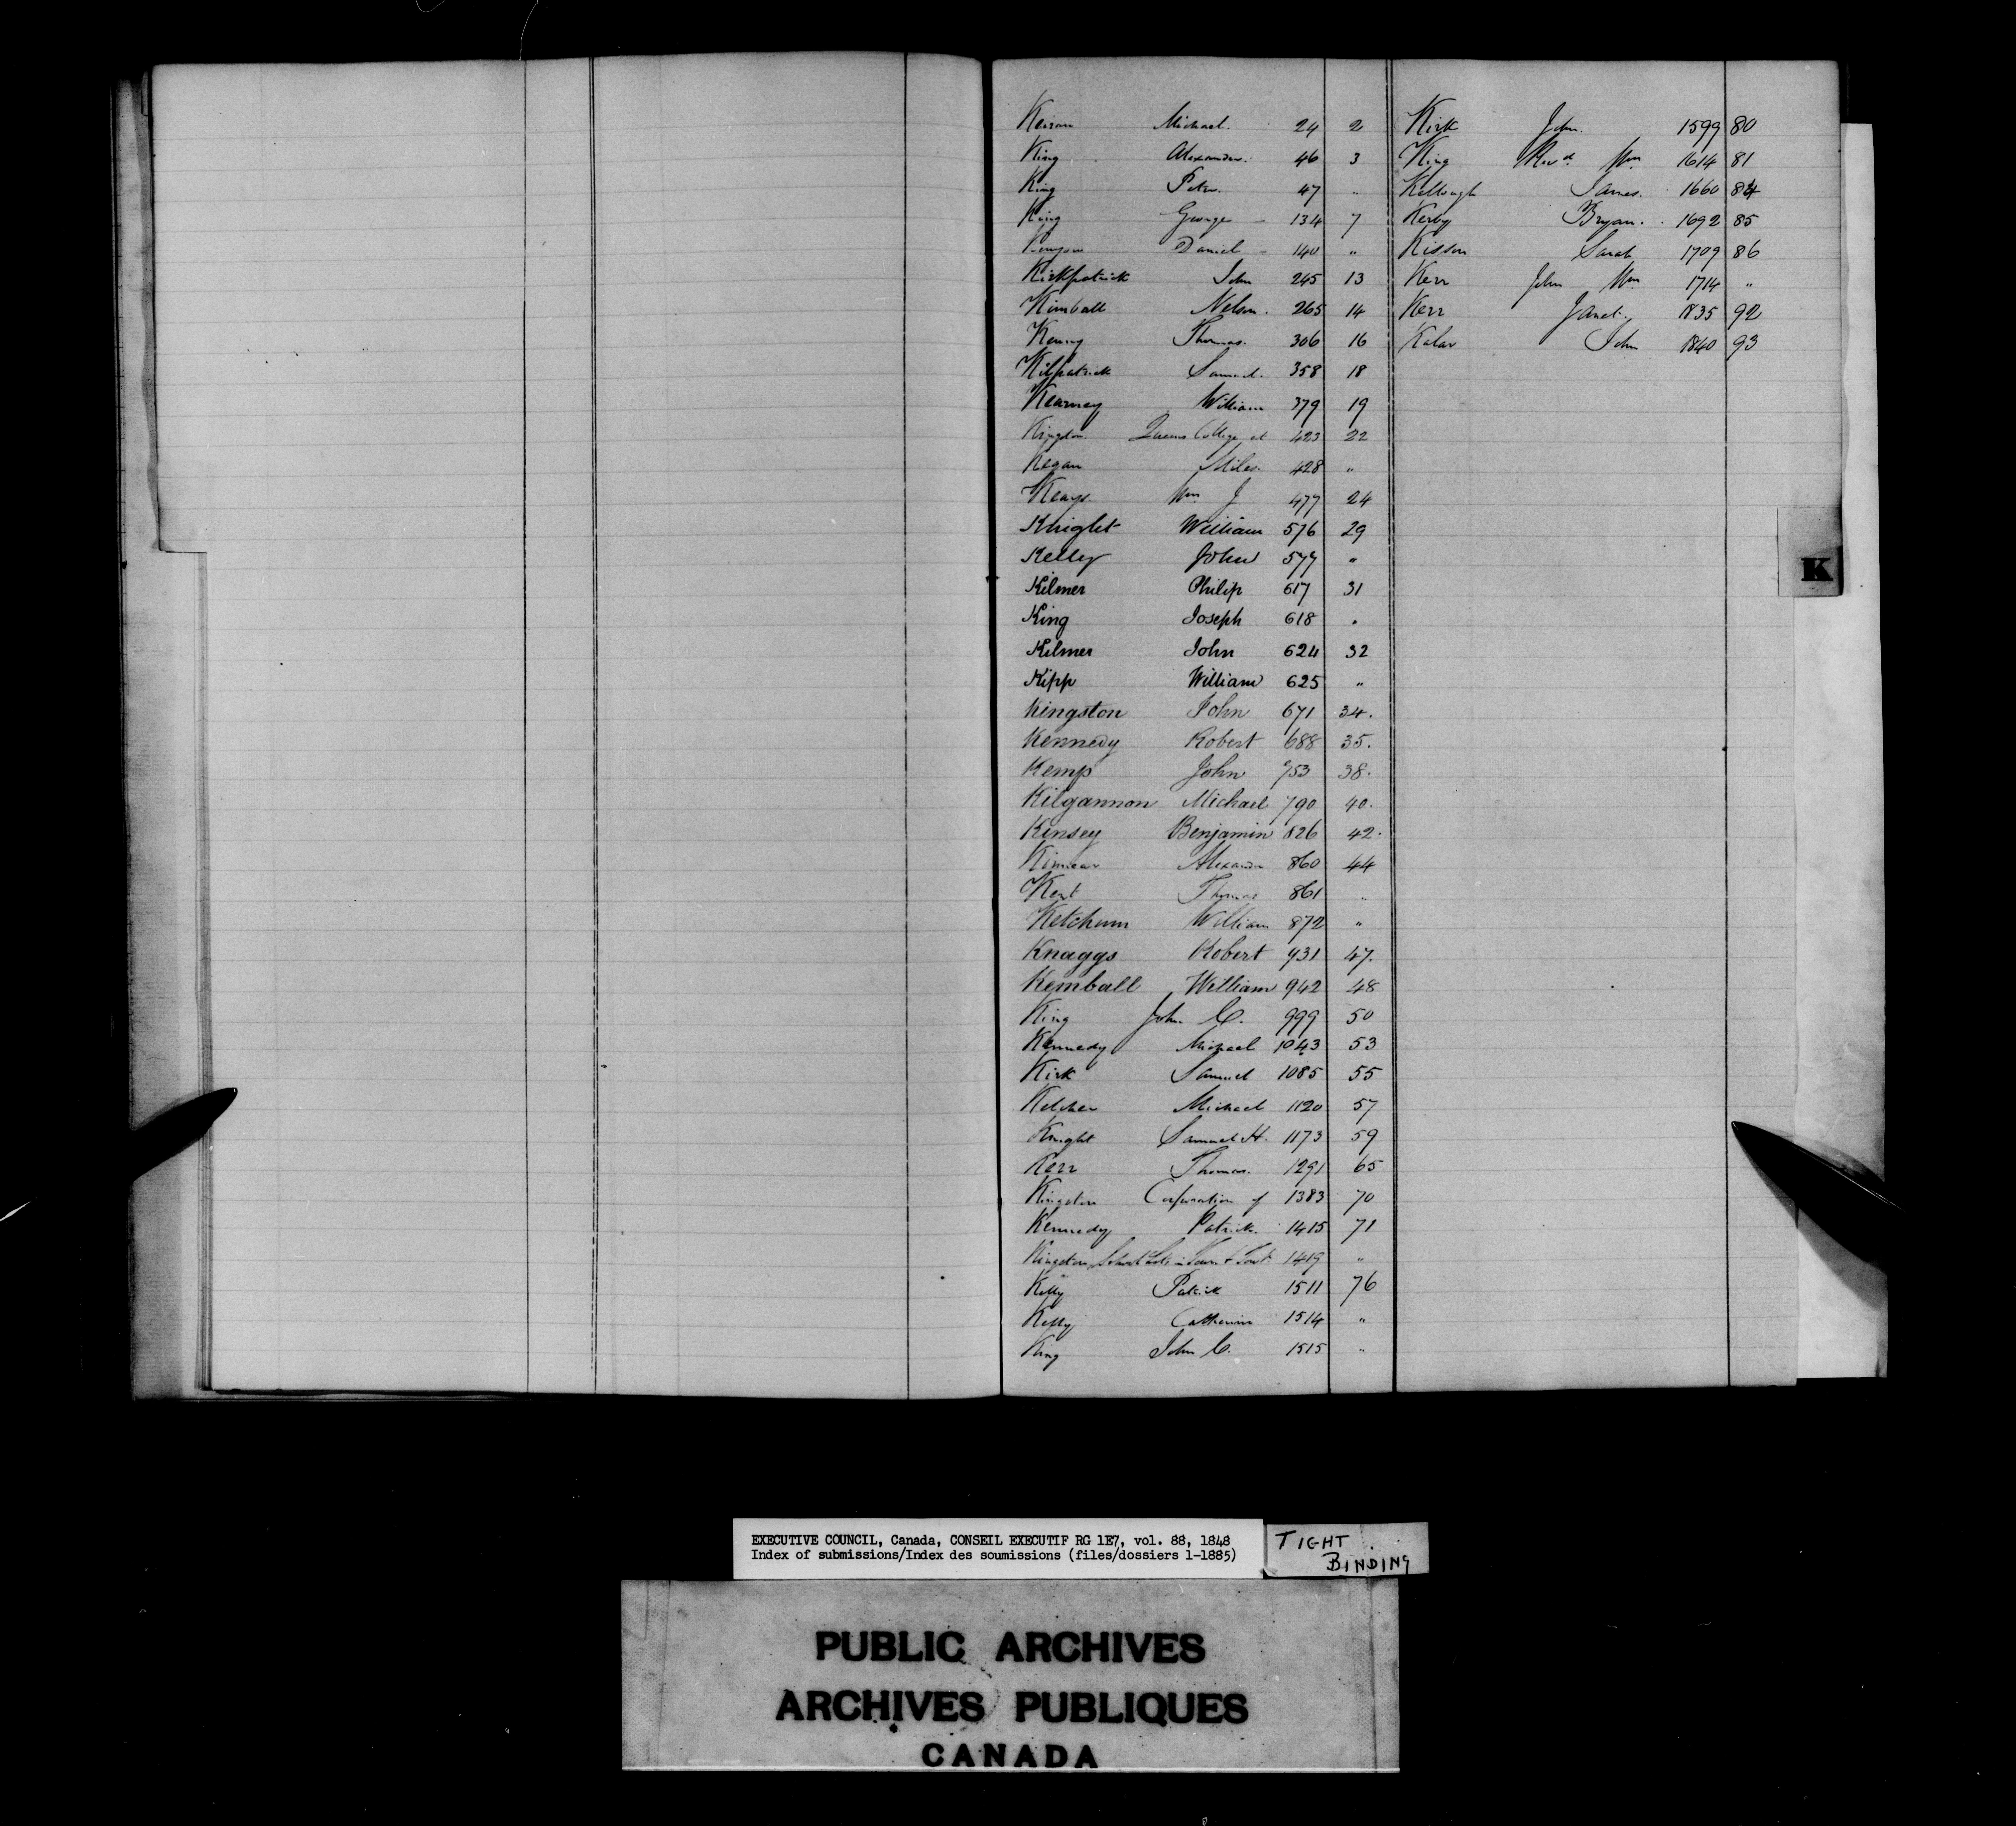 Keiran Michael. 24 2
King Alexander. 46 3
King Peter. 47 "
King George - 134 7
Kenyon Daniel - 140 "
Kirkpatrick John 245 13
Kimball Nelson. 265 14
Kenny Thomas. 306 16
Kilpatrick Samuel. 358 18
Kearney William 379 19
Kingston Queens College at 423 22
Kegan Miles. 428 "
Keays. Wm J 477 24
Knight William 576 29
Kelly John 577 "
Kilmer Philip 617 31
King Joseph 618 "
Kilmer John 624 32
Kipp William 625 "
Kingston John 671 34.
Kennedy Robert 688 35.
Kemp John 753 38.
Kilgannon Michael 790 40.
Kinsey Benjamin 826 42.
Kinnear Alexander 860 44
Kent Thomas 861 "
Ketchum William 872 "
Knaggs Robert 931 47.
Kemball William 942 48
King John C. 999 50
Kennedy Michael 1043 53
Kirk Samuel 1085 55
Kelcher Michael 1120 57
Knight Samuel H. 1173 59
Kerr Thomas. 1291 65
Kingston Corporation of 1383 70
Kennedy Patrick. 1415 71
Kingston School Lots in Town & Townp 1419 "
Kelly Patrick 1511 76
Kelly Catherine 1514 "
King John C. 1515 "
Kirk John. 1599 80
King Revd. Wm 1614 81
Kellough James. 1660 84
Kerby Bryan. 1692 85
Kisson Sarah 1709 86
Kerr John Wm 1714 "
Kerr Janet. 1835 92
Kalar John 1840 93
K
EXECUTIVE COUNCIL, Canada, CONSEIL EXECUTIF RG 1E7, vol. 88, 1848
Index of submissions/Index des soumissions (files/dossiers 1-1885)
TIGHT
BINDING
PUBLIC ARCHIVES
ARCHIVES PUBLIQUES
CANADA